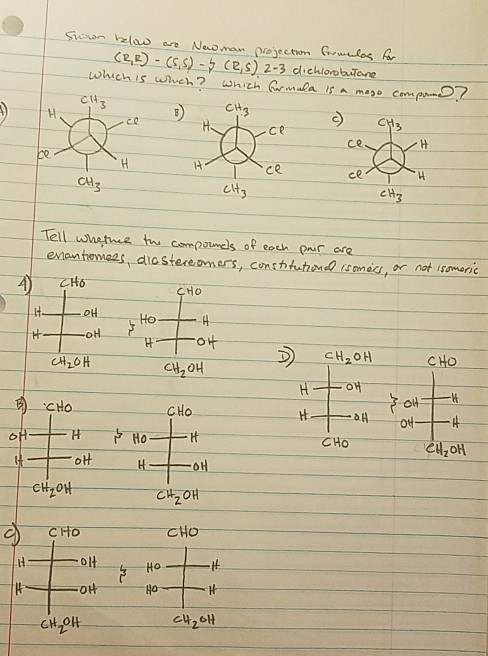 Shown below are Newman projection formulas for
(R,R) - (S,S) - & (R,S) 2-3 dichlorobutane
which is which? Which formula is a meso compound?
A)
CH3
H
Cl
Cl
H
CH3
B)
CH3
H
Cl
H
Cl
CH3
C)
CH3
Cl
H
Cl
H
CH3
Tell whether two compounds of each pair are
enantiomers, diastereomers, constitutional isomers, or not isomeric
A)
CHO
H OH
H OH
CH2OH
&
CHO
HO H
H OH
CH2OH
B)
CHO
OH H
H OH
CH2OH
&
CHO
HO H
H OH
CH2OH
C)
CHO
H OH
H OH
CH2OH
&
CHO
HO H
HO H
CH2OH
D)
CH2OH
H OH
H OH
CHO
&
CHO
OH H
OH H
CH2OH